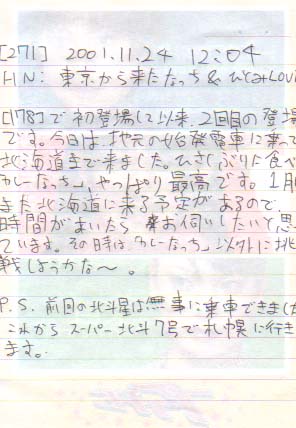 [271] 2001.11.24 12:04
H.N: 東京から来たなっち & ひとみLOVE
[178]で初登場して以来、2回目の登場
です。今日は、地元の始発電車に乗って
北海道まで来ました。ひさしぶりに食べ
「カレーなっち」、やっぱり最高です。1月
また北海道に来る予定があるので、
時間があいたら お伺いしたいと思
ています。その時は、「カレーなっち」以外に挑
戦しようかな〜。
P.S. 前回の北斗星は無事に乗車できました
これから スーパー北斗7号で札幌に行き
ます。